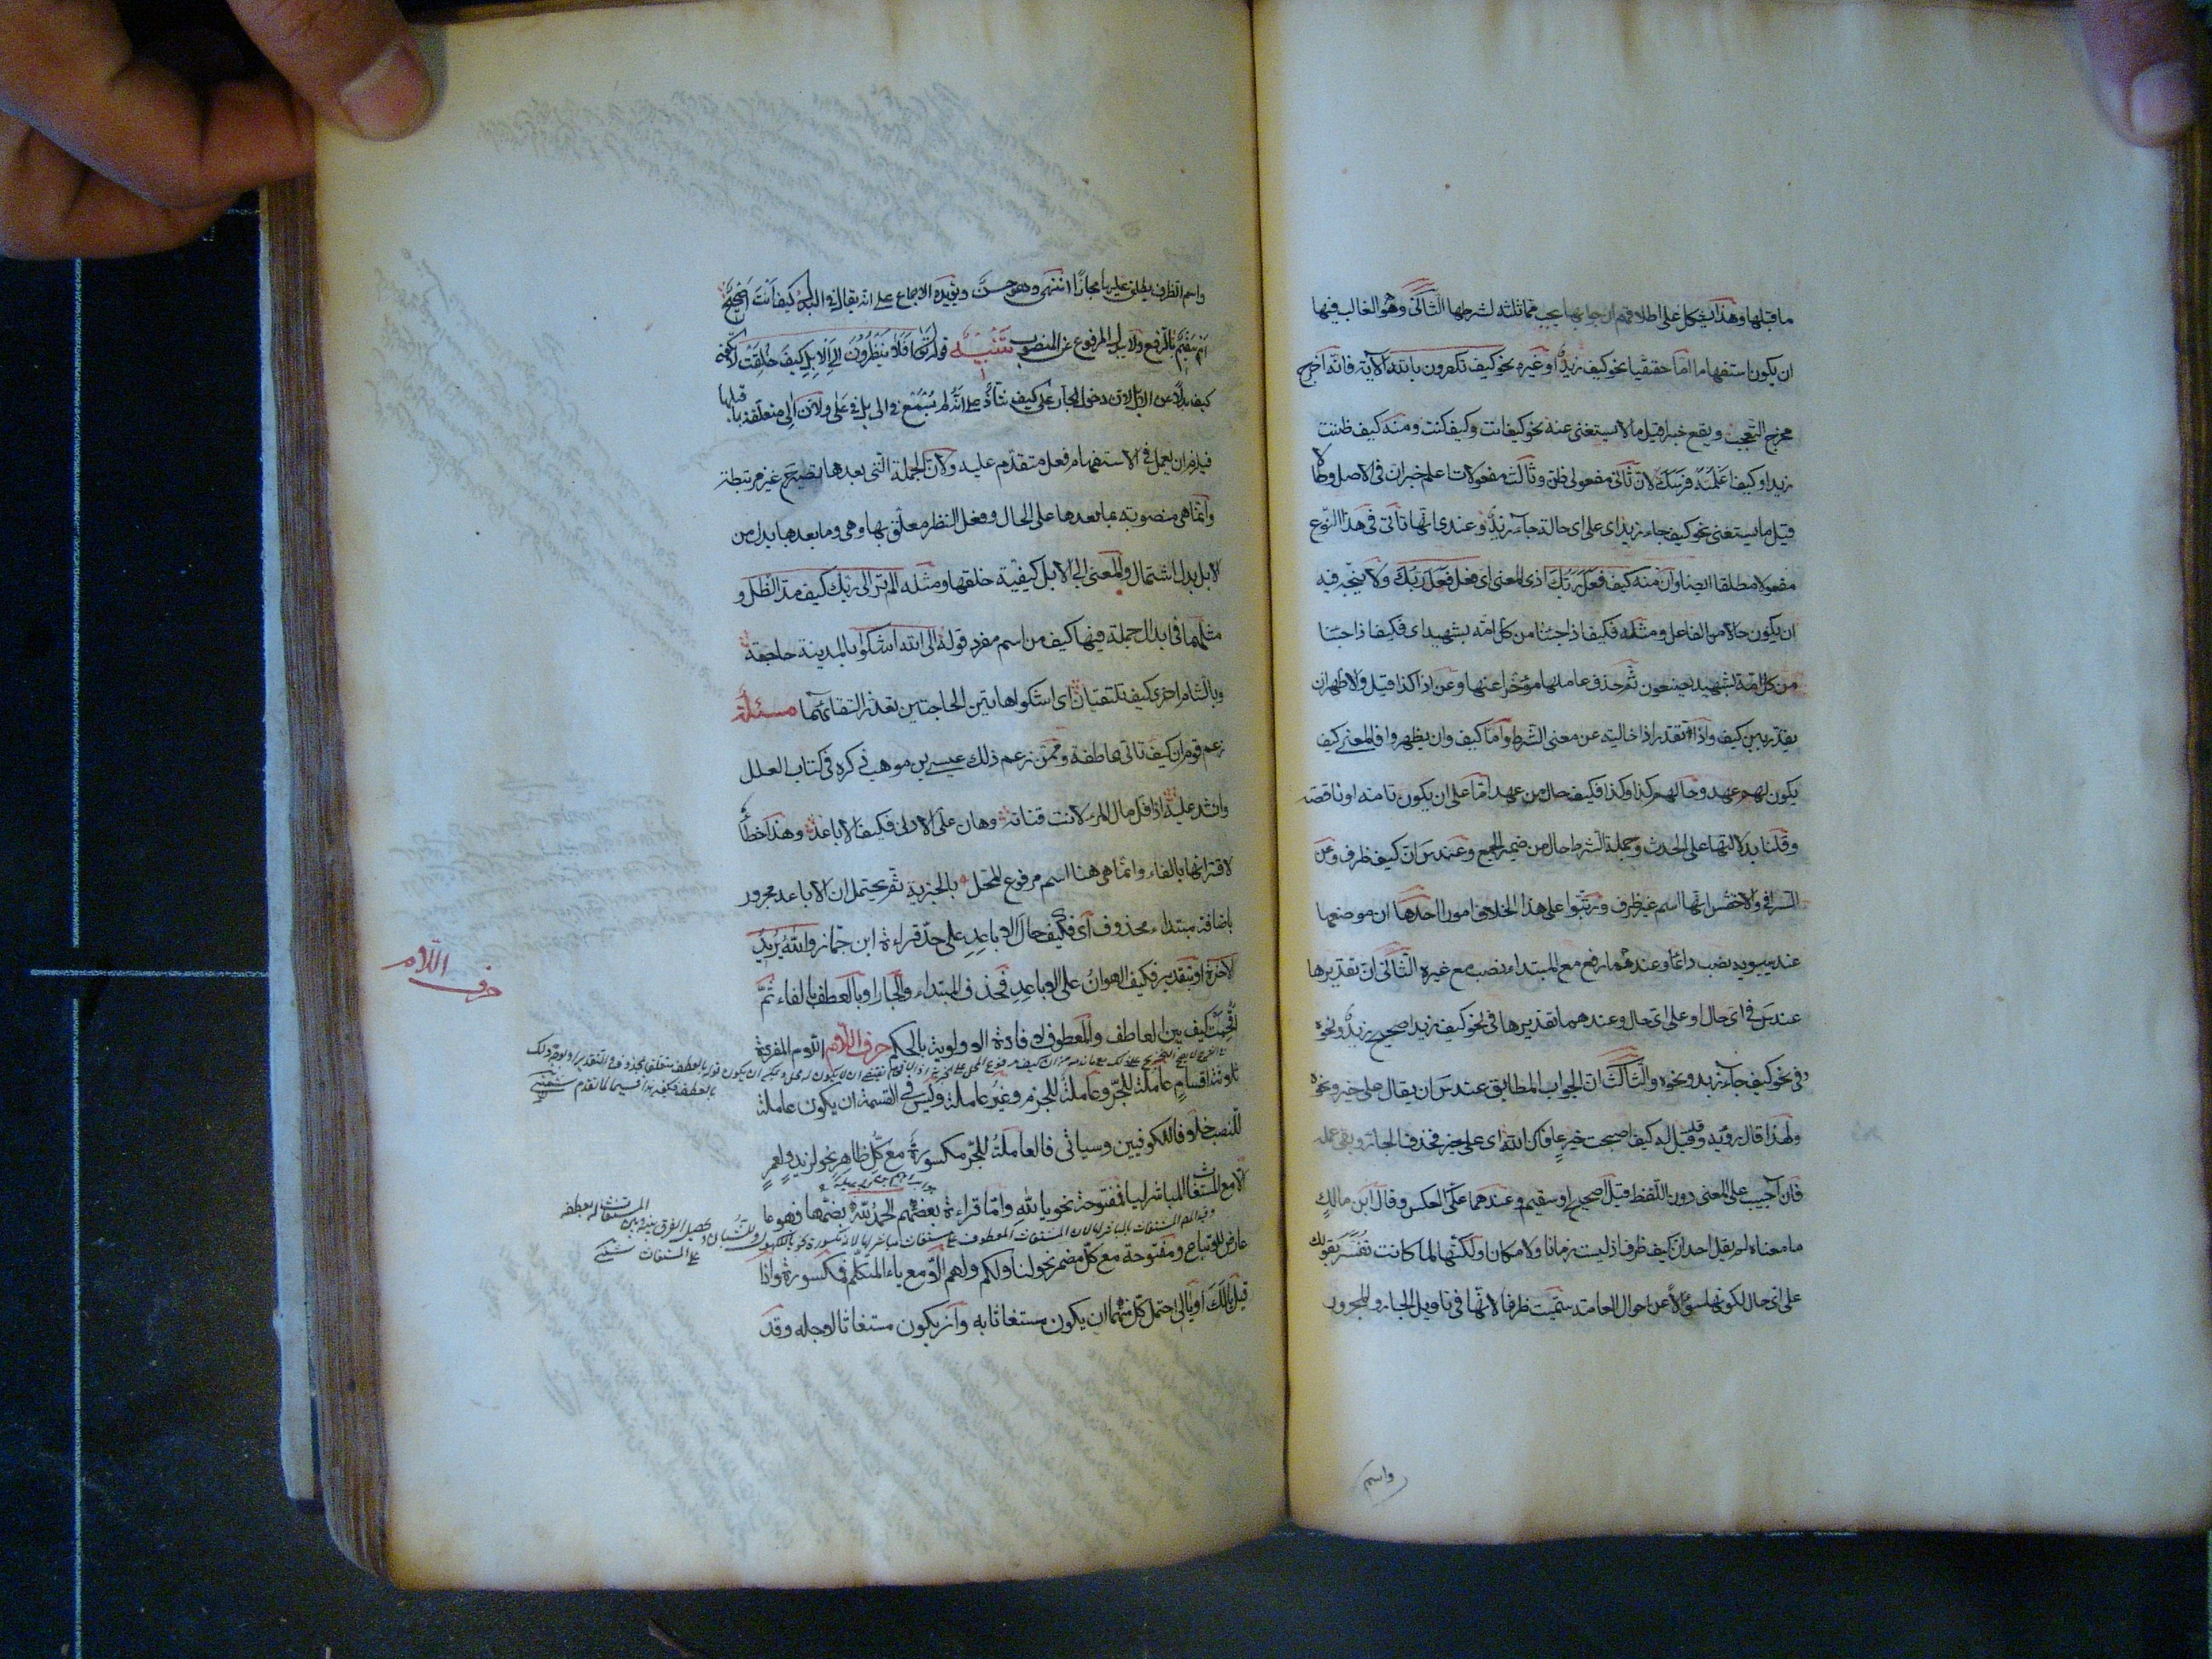 ما قبلها وهذا يشكل على اطلاقهم ان جوابها يجب مماثلته لشرطها الثانى وهو الغالب فيها
ان يكون استفهاما اما حقيقيا نحو كيف زيد او غيره نحو كيف تكفرون بالله الآية فانه اخرج
مخرج التعجب ويقع خبرا قبل ما لا يستغنى عنه نحو كيف انت وكيف كنت ومنه كيف ظننت
زيدا وكيف اعلمته فرسك لان ثانى مفعولى ظن وثالث مفعولات اعلم خبران فى الاصل وحالا
قبل ما يستغنى نحو كيف جاء زيد اى على اى حالة جاء زيد وعندى انها تأتى فى هذا النوع
مفعولا مطلقا ايضا وان منه كيف فعل ربك اذ المعنى اى فعل فعل ربك ولا يتجه فيه
ان يكون حالا من الفاعل ومثله فكيف اذا جئنا من كل امة بشهيد اى فكيف اذا جئنا
من كل امة بشهيد يصنعون ثم حذف عاملها مؤخرا عنها وعن اذا كذا قيل والاظهر ان
يقدر بين كيف واذا وتقدر اذا خالية عن معنى الشرط واما كيف وان يظهروا فالمعنى كيف
يكون لهم عهد وحالهم كذا وكذا فكيف حال من عهد اما على ان يكون تامة او ناقصة
وقلنا بدلالتها على الحدث وجملة الشرط حال من ضمير الجمع وعن س ان كيف ظرف وعن
السيرافى والاخفش انها اسم غير ظرف ورتبوا على هذا الخلاف امورا احدها ان موضعها
عند سيبويه نصب دائما وعندهما رفع مع المبتداء نصب مع غيره الثانى ان تقديرها
عند س فى اى حال او على اى حال وعندهما تقديرها فى نحو كيف زيد اصحيح زيد ونحوه
وفى نحو كيف جاء زيد ونحوه والثالث ان الجواب المطابق عند س ان يقال على خير ونحوه
ولهذا قال رؤبة وقد قيل له كيف اصبحت خير عافاك الله اى على خير فحذف الجار وبقى عمله
فان اجيب على المعنى دون اللفظ قيل صحيح او سقيم وعندهما على العكس وقال ابن مالك
ما معناه لم يقل احد ان كيف ظرف اذ ليست زمانا ولا مكانا ولكنها لما كانت تفسر بقولك
على اى حال لكونها سؤالا عن احوال العامة سميت ظرفا لانها فى تاويل الجار والمجرور
واسم
واسم الظرف يطلق عليهما مجازا انتهى وهو حسن ويؤيده الاجماع على انه يقال فى البدل كيف انت اصحيح
ام سقيم بالرفع ولا يبدل المرفوع عن المنصوب تنبيه قوله تعالى افلا ينظرون الى الابل كيف خلقت لا تكون
كيف بدلا من الابل لان دخول الجار على كيف شاذ على انه لم يسمع فى الى بل فى على ولان الى متعلقة بما قبلها
فيلزم ان يعمل فى الاستفهام فعل متقدم عليه ولان الجملة التى بعدها تصير غير مرتبطة
وانما هى منصوبة بما بعدها على الحال وفعل النظر معلق بها وهى وما بعدها بدل من
الابل بدل اشتمال والمعنى الى الابل كيفية خلقها ومثله الم تر الى ربك كيف مد الظل و
مثلها فى ابدال جملة فيها كيف من اسم مفرد قوله الى الله اشكو بالمدينة حاجة
وبالشام اخرى كيف تلتقيان اى اشكو هاتين الحاجتين تعذر التقائهما مسئلة
زعم قوم ان كيف تاتى عاطفة وممن زعم ذلك عيسى بن موهب ذكره فى كتاب العلل
وانشد عليه اذا قل مال المرء لانت قناته وهان على الادنى فكيف الاباعد وهذا خطأ
لاقترانها بالفاء وانما هى هنا اسم مرفوع المحل بالخبرية ثم يحتمل ان الاباعد مجرور
باضافة مبتداء محذوف اى فكيف حال الاباعد على حد قراءة ابن جماز والله يريد
الآخرة او بتقدير فكيف الهوان على الاباعد فحذف المبتداء والجار او بالعطف بالفاء ثم
اقحمت كيف بين العاطف والمعطوف لافادة الاولوية بالحكم حرف اللام اللام المفردة
حرف اللام
ثلاثة اقسام عاملة للجر وعاملة للجزم وغير عاملة وليس فى القسمة ان يكون عاملة
بالعطف فكيف
للنصب خلافا للكوفيين وسياتى فالعاملة للجر مكسورة مع كل ظاهر نحو لزيد ولعمر
الا مع المستغاث المباشر ليا فمفتوحة نحو يا لله واما قراءة بعضهم الحمد لله بضمها فهو
المستغاث له بعطفه
على المستغاث شمنى
عارض للاتباع ومفتوحة مع كل مضمر نحو لنا ولكم ولهم الا مع ياء المتكلم فمكسورة واذا
قيل يا لك او يا لى احتمل كل منهما ان يكون مستغاثا به وان يكون مستغاثا لاجله وقد